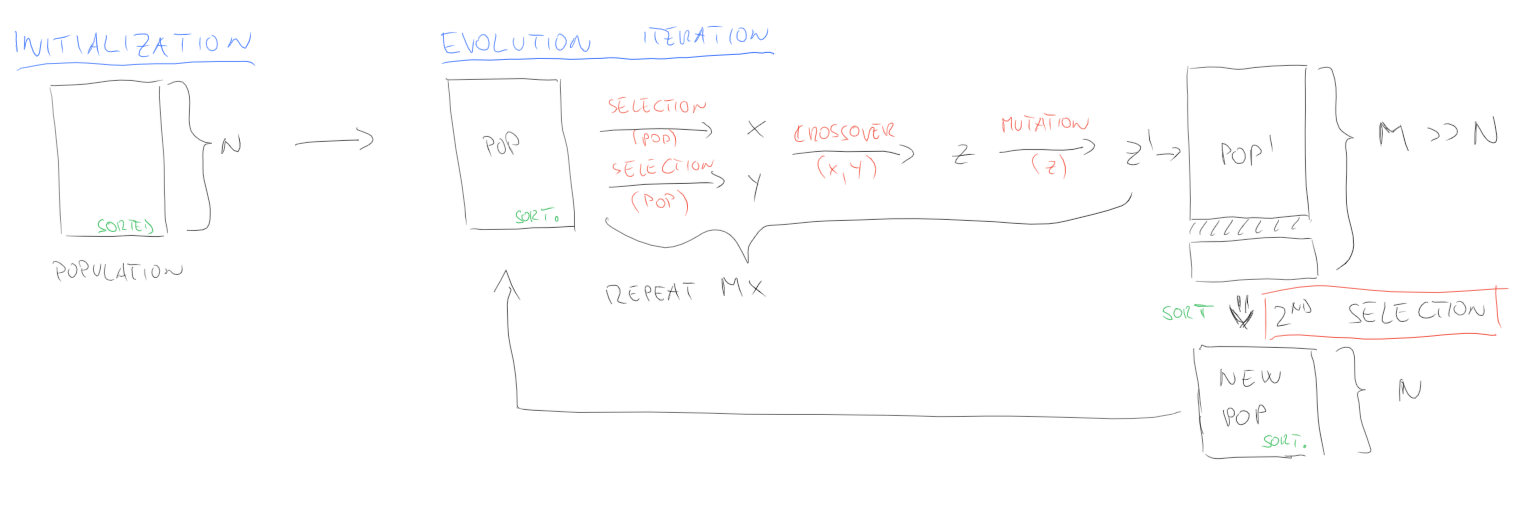 INITIALIZATION
N
SORTED
POPULATION
EVOLUTION ITERATION
POP
SORT.
SELECTION
(POP)
X
SELECTION
(POP)
Y
CROSSOVER
(X,Y)
Z
MUTATION
(Z)
Z'
REPEAT MX
POP'
M >> N
SORT
2ND SELECTION
NEW
POP
SORT.
N